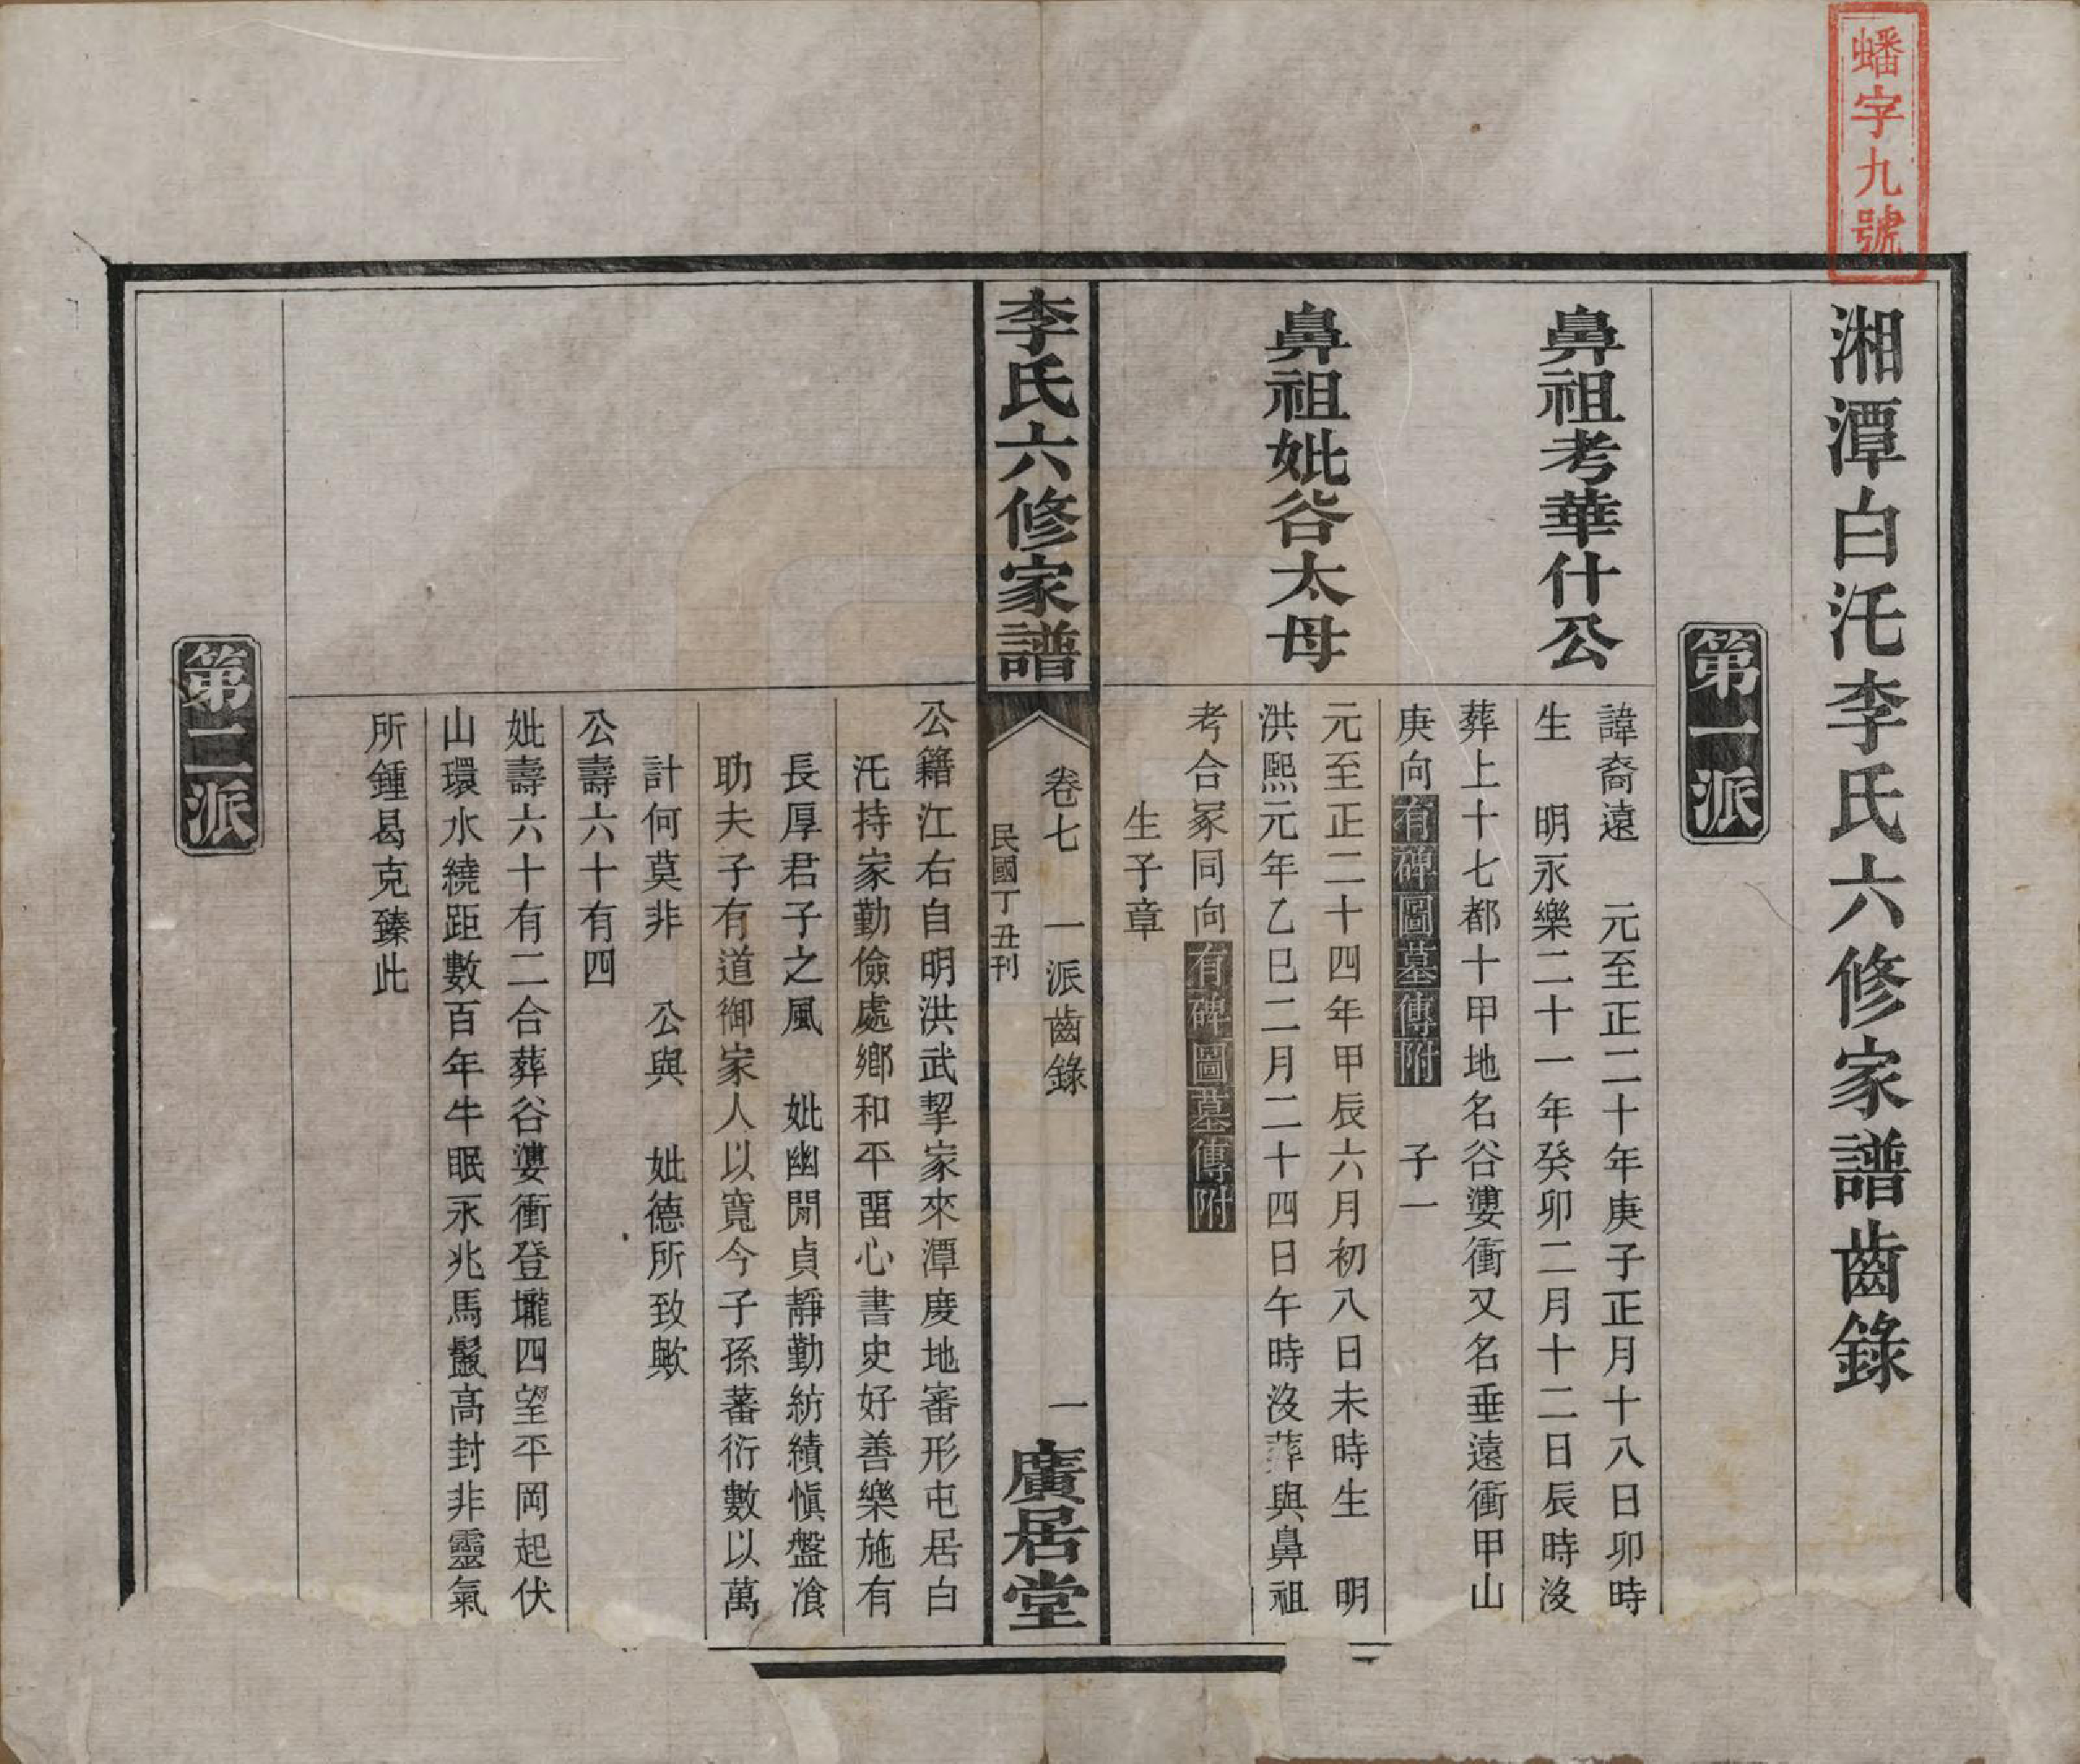 蟠字九號
湘潭白汑李氏六修家譜齒錄
第一派
鼻祖考華什公
諱裔遠　元至正二十年庚子正月十八日卯時
生　明永樂二十一年癸卯二月十二日辰時沒
葬上十七都十甲地名谷漊衝又名垂遠衝甲山
庚向有碑圖墓傳附　子一
鼻祖妣谷太母
元至正二十四年甲辰六月初八日未時生　明
洪熙元年乙巳二月二十四日午時沒葬與鼻祖
考合冢同向有碑圖墓傳附
生子章
李氏六修家譜
卷七　一派齒錄
民國丁丑刊
一
廣居堂
公籍江右自明洪武挈家來潭度地審形屯居白
汑持家勤儉處鄉和平畱心書史好善樂施有
長厚君子之風　妣幽閒貞靜勤紡績愼盤飡
助夫子有道御家人以寬今子孫蕃衍數以萬
計何莫非　公與　妣德所致歟
公壽六十有四
妣壽六十有二合葬谷漊衝登壠四望平岡起伏
山環水繞距數百年牛眠永兆馬鬛高封非靈氣
所鍾曷克臻此
第二派